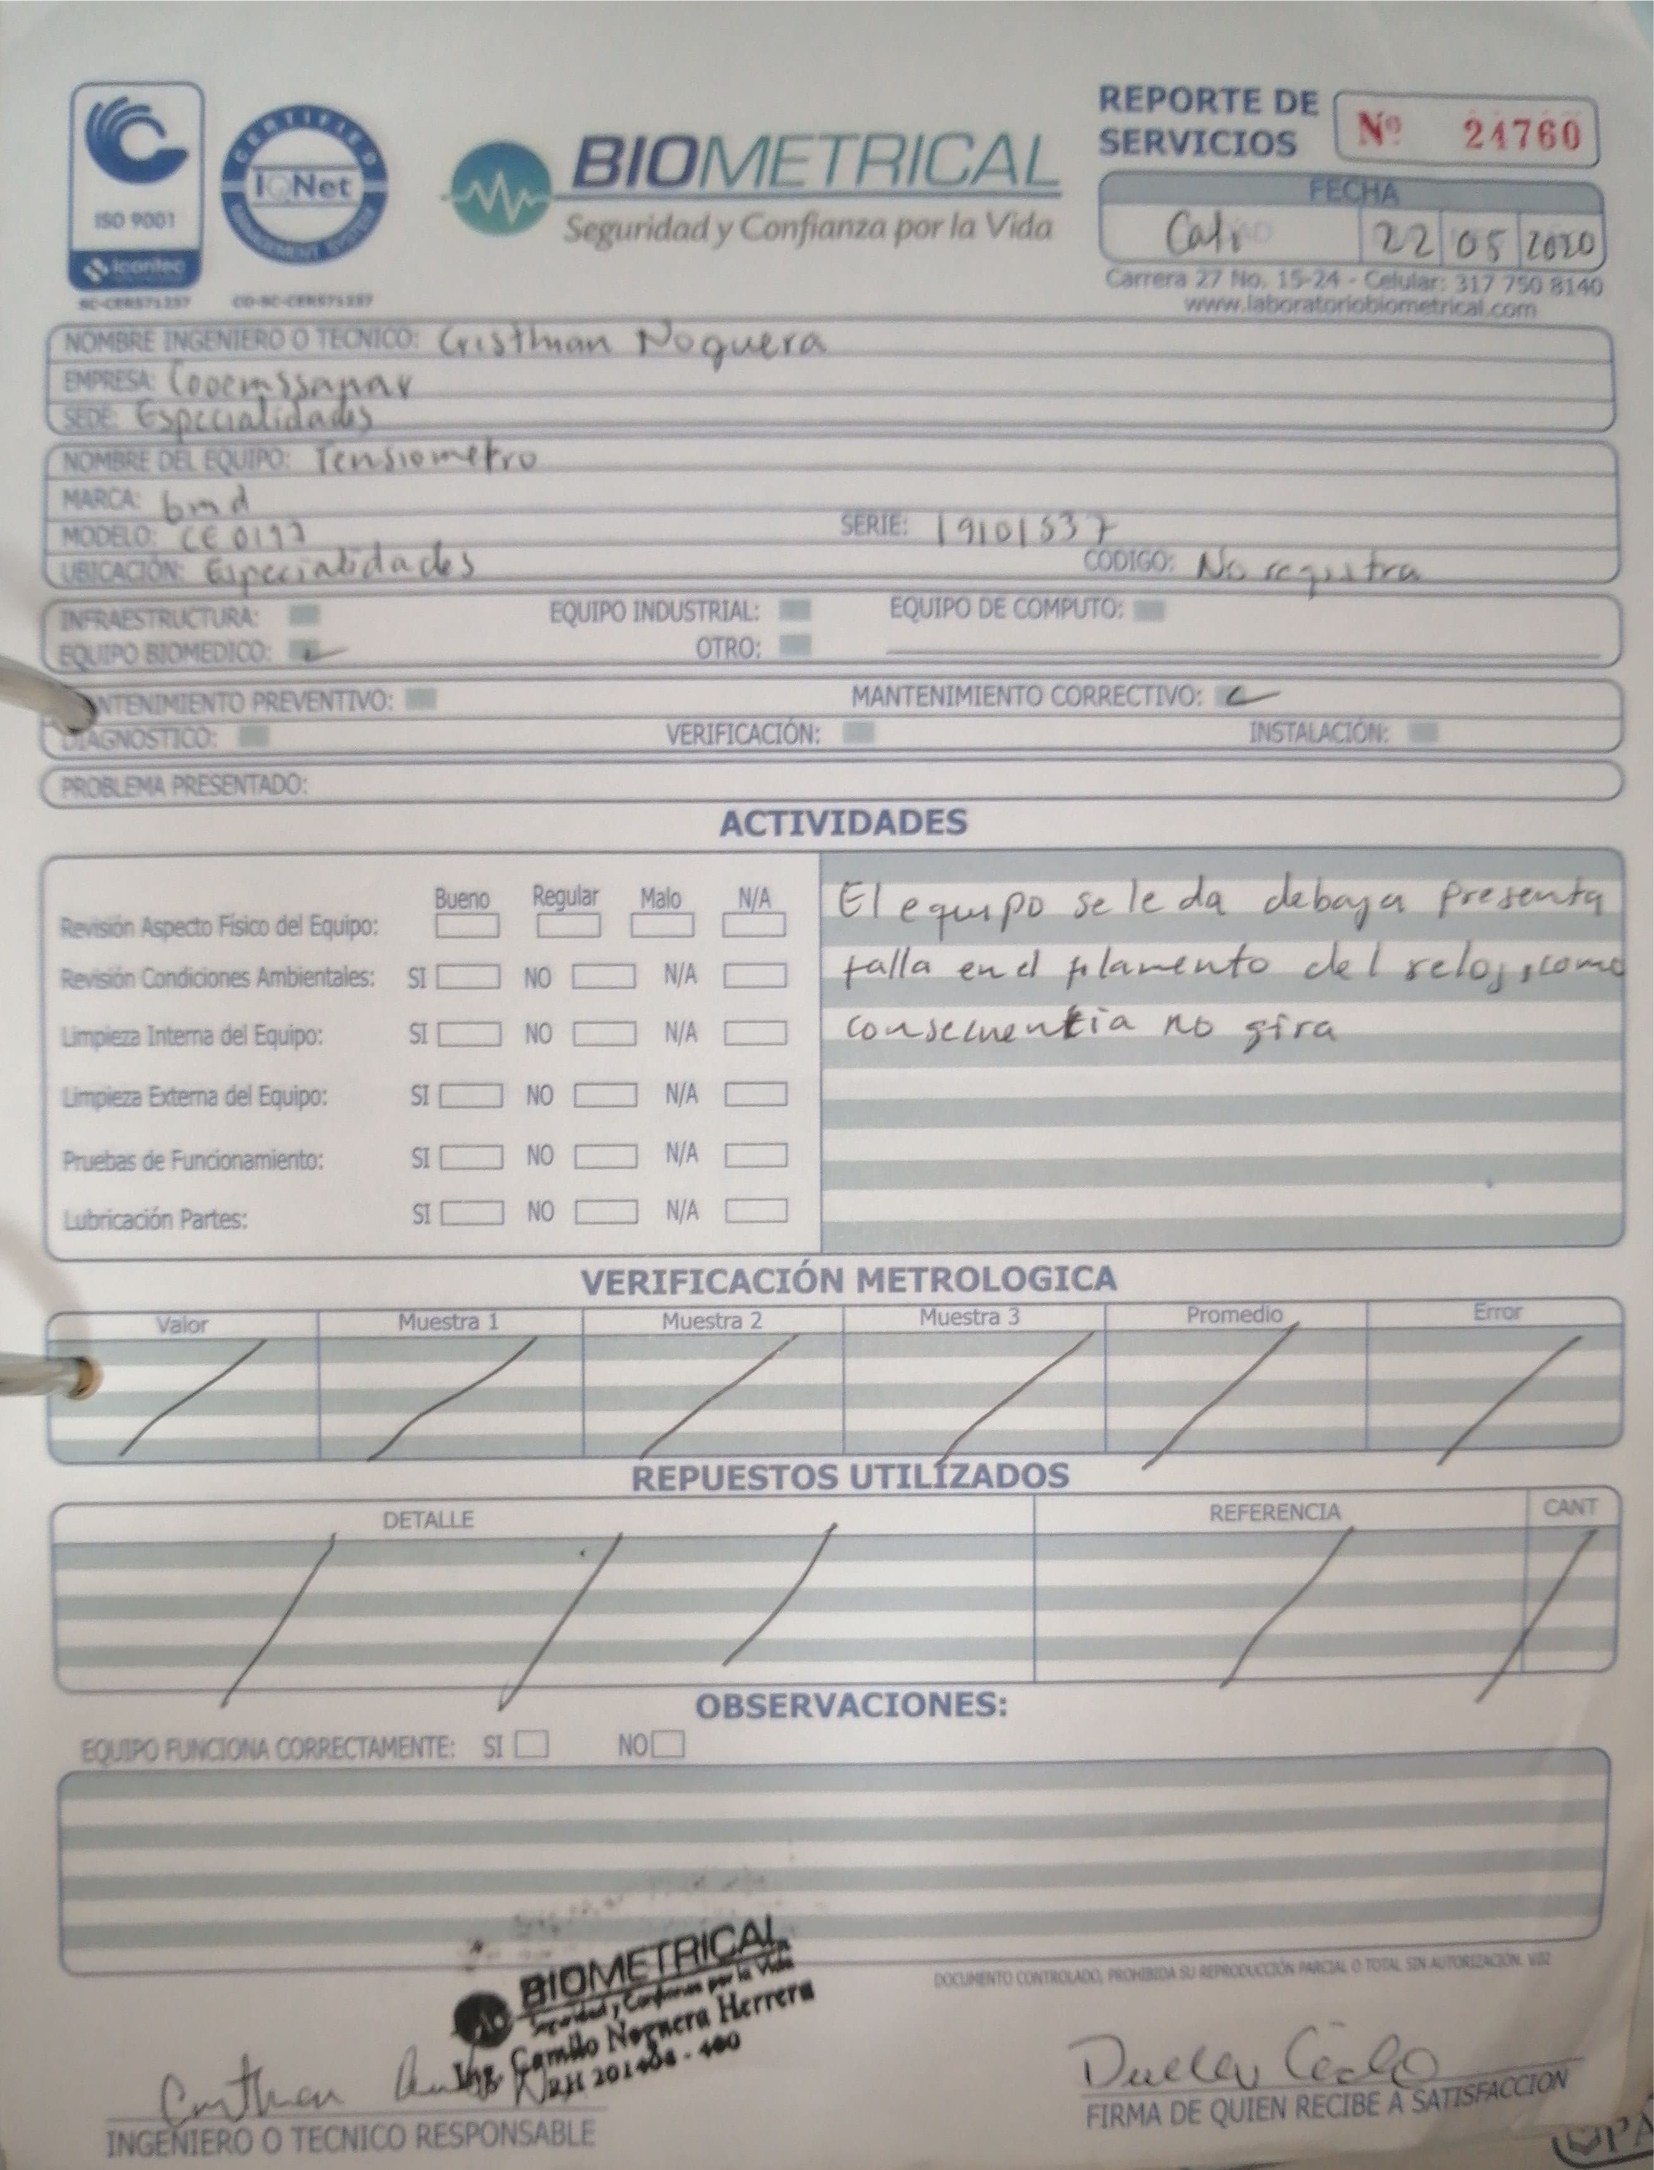 REPORTE DE
SERVICIOS
Nº 24760
ISO 9001
icontec
SC-CER571257
CERTIFIED
IQNet
MANAGEMENT SYSTEM
CO-SC-CER571257
BIOMETRICAL
Seguridad y Confianza por la Vida
FECHA
Cali 22 05 2020
Carrera 27 No. 15-24 - Celular: 317 750 8140
www.laboratoriobiometrical.com
NOMBRE INGENIERO O TECNICO: Cristhian Noguera
EMPRESA: Cooemssanar
SEDE: Especialidades
NOMBRE DEL EQUIPO: Tensiometro
MARCA: bmd
MODELO: CE 0197 SERIE: 19101537
UBICACIÓN: Especialidades CODIGO: No registra
INFRAESTRUCTURA: EQUIPO INDUSTRIAL: EQUIPO DE COMPUTO:
EQUIPO BIOMEDICO: OTRO:
MANTENIMIENTO PREVENTIVO: MANTENIMIENTO CORRECTIVO:
DIAGNOSTICO: VERIFICACIÓN: INSTALACIÓN:
PROBLEMA PRESENTADO:
ACTIVIDADES
Bueno Regular Malo N/A
Revisión Aspecto Físico del Equipo:
Revisión Condiciones Ambientales: SI NO N/A
Limpieza Interna del Equipo: SI NO N/A
Limpieza Externa del Equipo: SI NO N/A
Pruebas de Funcionamiento: SI NO N/A
Lubricación Partes: SI NO N/A
El equipo se le da debaja presenta
falla en el filamento del reloj, como
consecuentia no gira
VERIFICACIÓN METROLOGICA
Valor Muestra 1 Muestra 2 Muestra 3 Promedio Error
REPUESTOS UTILIZADOS
DETALLE REFERENCIA CANT
OBSERVACIONES:
EQUIPO FUNCIONA CORRECTAMENTE: SI NO
DOCUMENTO CONTROLADO, PROHIBIDA SU REPRODUCCIÓN PARCIAL O TOTAL SIN AUTORIZACIÓN. V.02
BIOMETRICAL
Seguridad y Confianza por la Vida
Ing. Camilo Noguera Herrera
RH 201408 - 460
INGENIERO O TECNICO RESPONSABLE
FIRMA DE QUIEN RECIBE A SATISFACCION